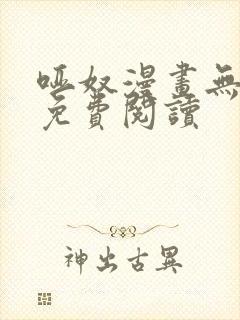 啞奴漫畫無
免費閱讀
神出古異